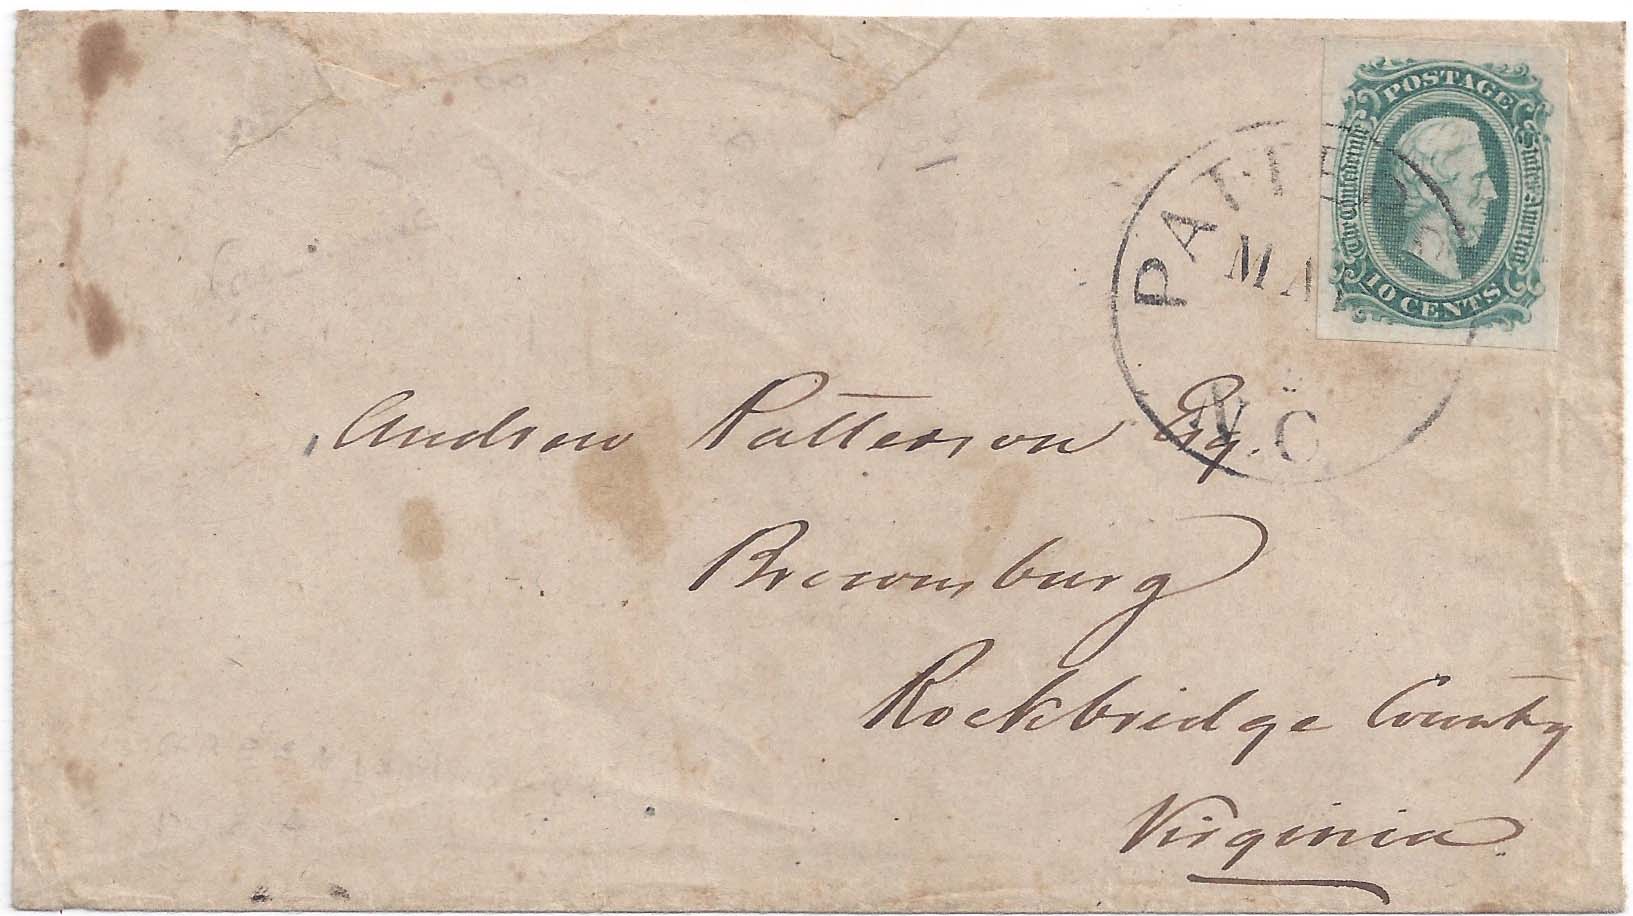 POSTAGE
The Confederate States of America
10 CENTS
N.C.
Andrew Patterson Esq.
Brownsburg
Rockbridge County
Virginia